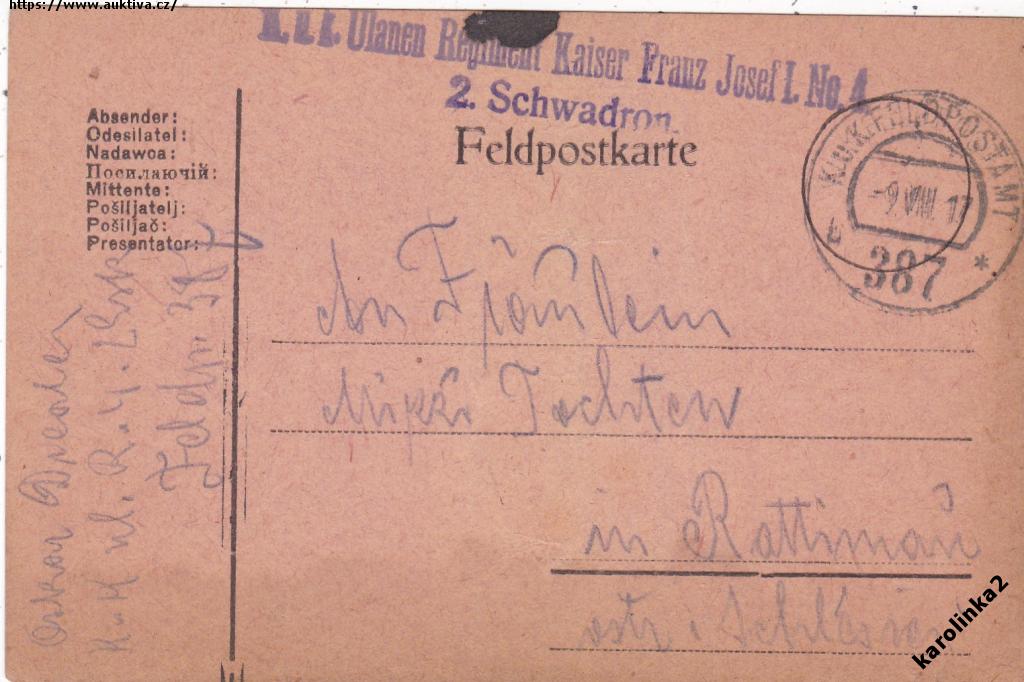 https://www.auktiva.cz/
K. u. k. Ulanen Regiment Kaiser Franz Josef I. No. 4
2. Schwadron.
Feldpostkarte
K.u.K. FELDPOSTAMT
-9.VIII.17
b
387
*
Absender:
Odesílatel:
Nadawca:
Посилаючій:
Mittente:
Pošiljatelj:
Pošiljač:
Presentator:
Oskar
K. u. k. ul. R. 4.
Feldp. 387
An Fräulein
Mizzi Tochten
in Rattimau
ostr. Schlesien
karolinka2